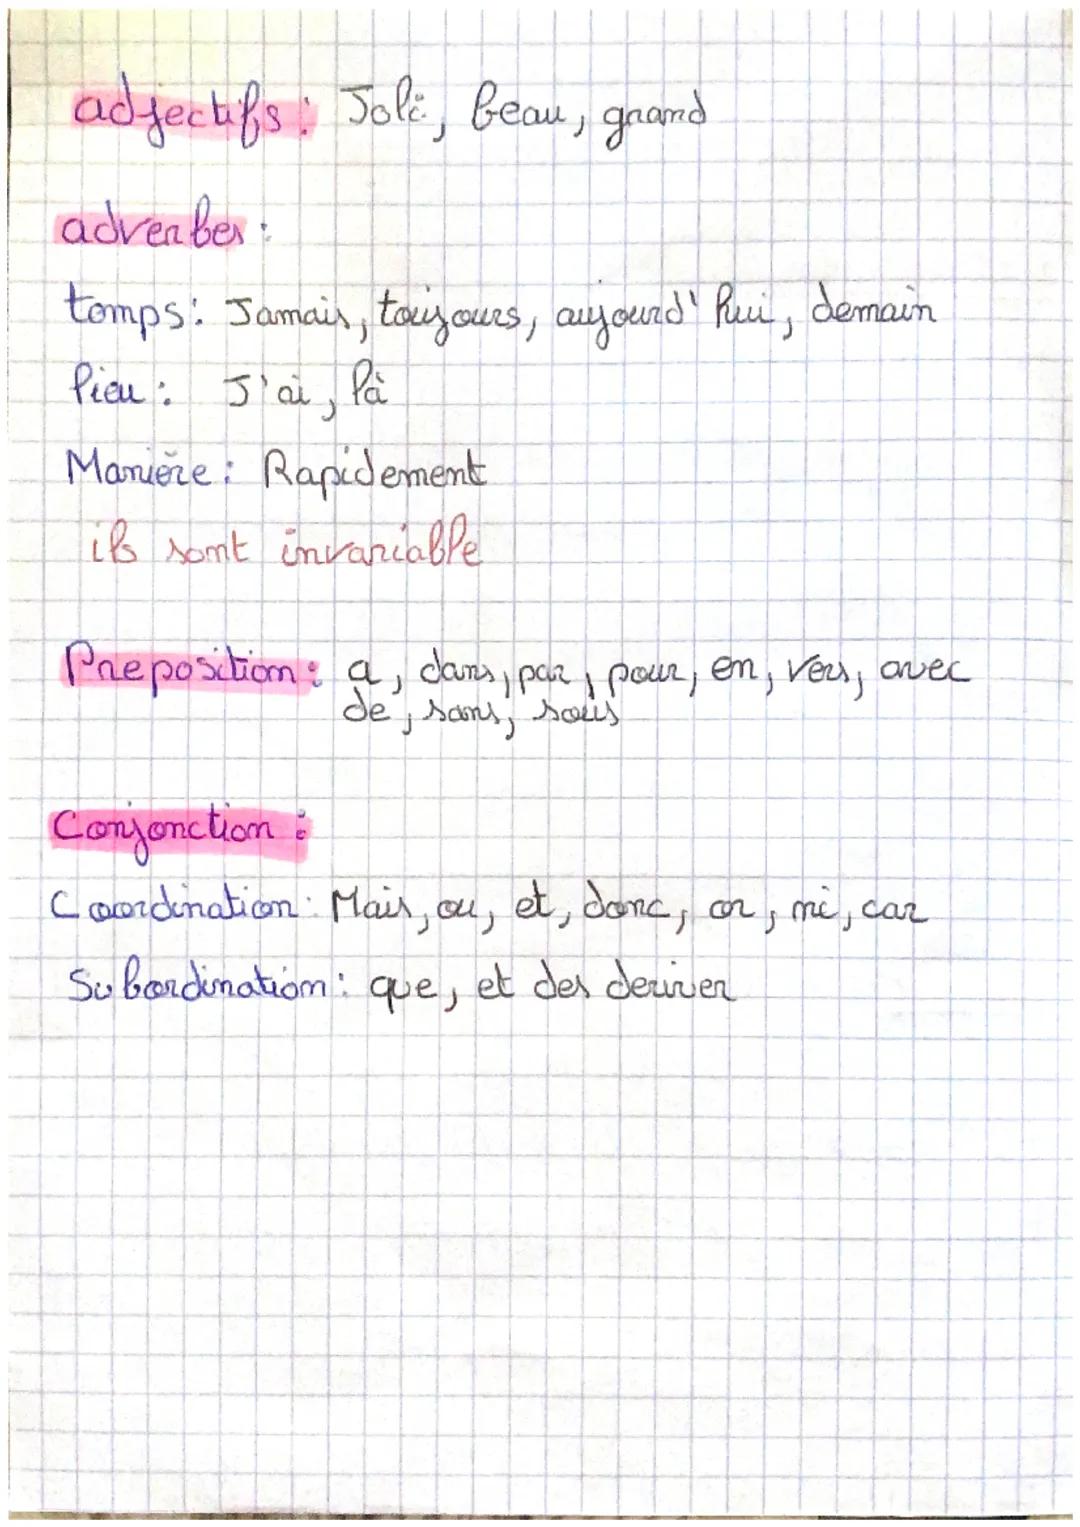 adjectifs : Joli, beau, grand
adverbes :
temps : Jamais, toujours, aujourd'hui, demain
lieu : J'ai, là
Manière : Rapidement
ils sont invariable
Preposition : a, dans, par, pour, en, vers, avec
de, sans, sous
Conjonction :
Coordination : Mais, ou, et, donc, or, ni, car
Subordination : que, et des deriver